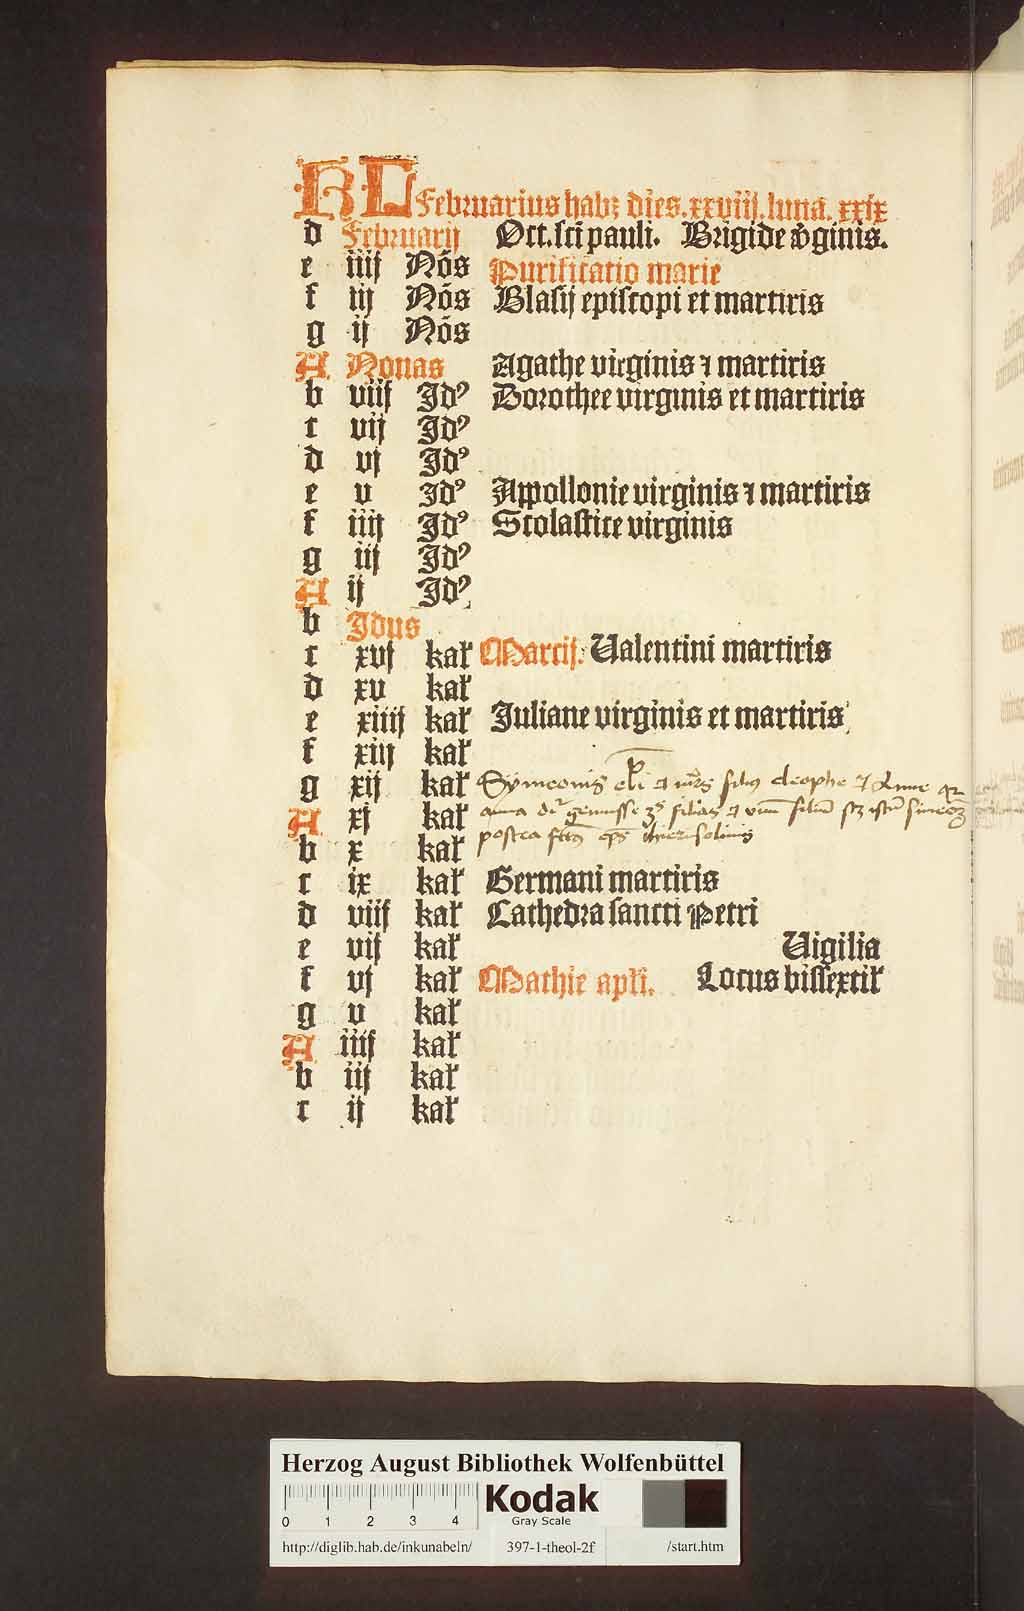 KL Februarius habꝫ dies.xxviij.luna.xxix
d Februarij Oct.sci pauli. Brigide v̾ginis.
e iiij Nōs Purificatio marie
f iij Nōs Blasij episcopi et martiris
g ij Nōs
A Nonas Agathe virginis ⁊ martiris
b viij Idꝰ Dorothee virginis et martiris
c vij Idꝰ
d vj Idꝰ
e v Idꝰ Appollonie virginis ⁊ martiris
f iiij Idꝰ Scolastice virginis
g iij Idꝰ
A ij Idꝰ
b Idus
c xvj kal̓ Marcij. Valentini martiris
d xv kal̓
e xiiij kal̓ Juliane virginis et martiris
f xiij kal̓
g xij kal̓ Symeonis filiꝰ cleophe ⁊ Anne
A xj kal̓ anna genuisse filias filiū
b x kal̓ postea iherosolimis
c ix kal̓ Germani martiris
d viij kal̓ Cathedra sancti Petri
e vij kal̓ Vigilia
f vj kal̓ Mathie apl̓i. Locus bissextil̓
g v kal̓
A iiij kal̓
b iij kal̓
c ij kal̓
Herzog August Bibliothek Wolfenbüttel
0 1 2 3 4
Kodak
Gray Scale
http://diglib.hab.de/inkunabeln/ 397-1-theol-2f /start.htm